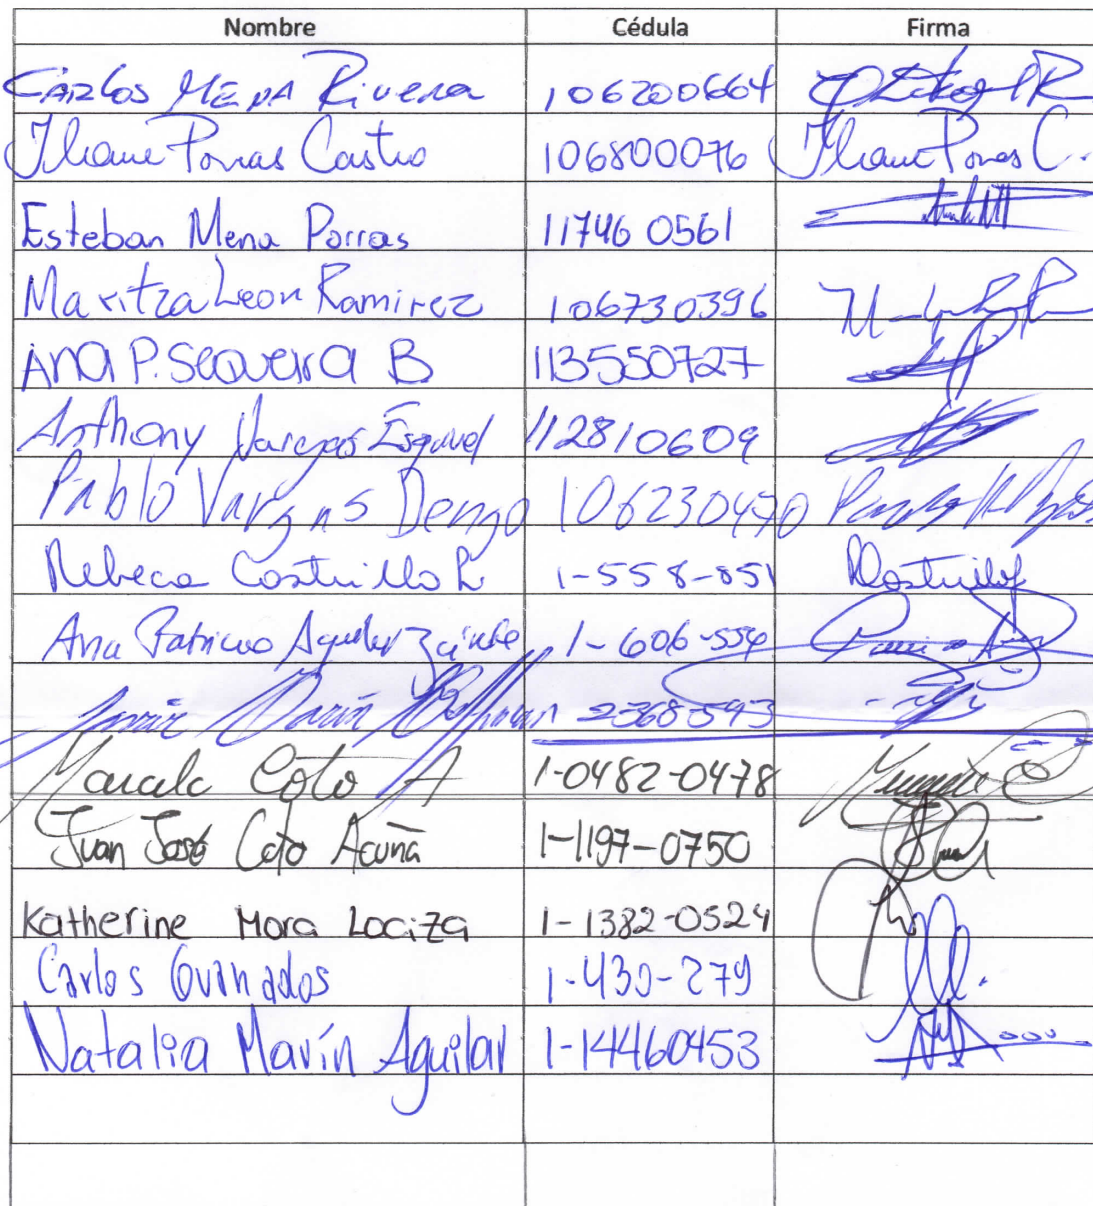 Nombre Cédula Firma
Carlos Mena Rivera 106200664
Iliana Porras Castro 106800076
Esteban Mena Porras 117460561
Maritza Leon Ramirez 106730396
Ana P. Sequeira B 113550727
Anthony Vargas Esquivel 112810609
Pablo Vargas Dengo 106230470
Rebeca Castrillo R 1-558-851
Ana Patricia Aguilar 1-606-554
Marín
Marcela Coto A 1-0482-0478
Juan José Coto Acuña 1-1197-0750
Katherine Mora Loaiza 1-1382-0524
Carlos Granados 1-430-279
Natalia Marín Aguilar 1-14460453